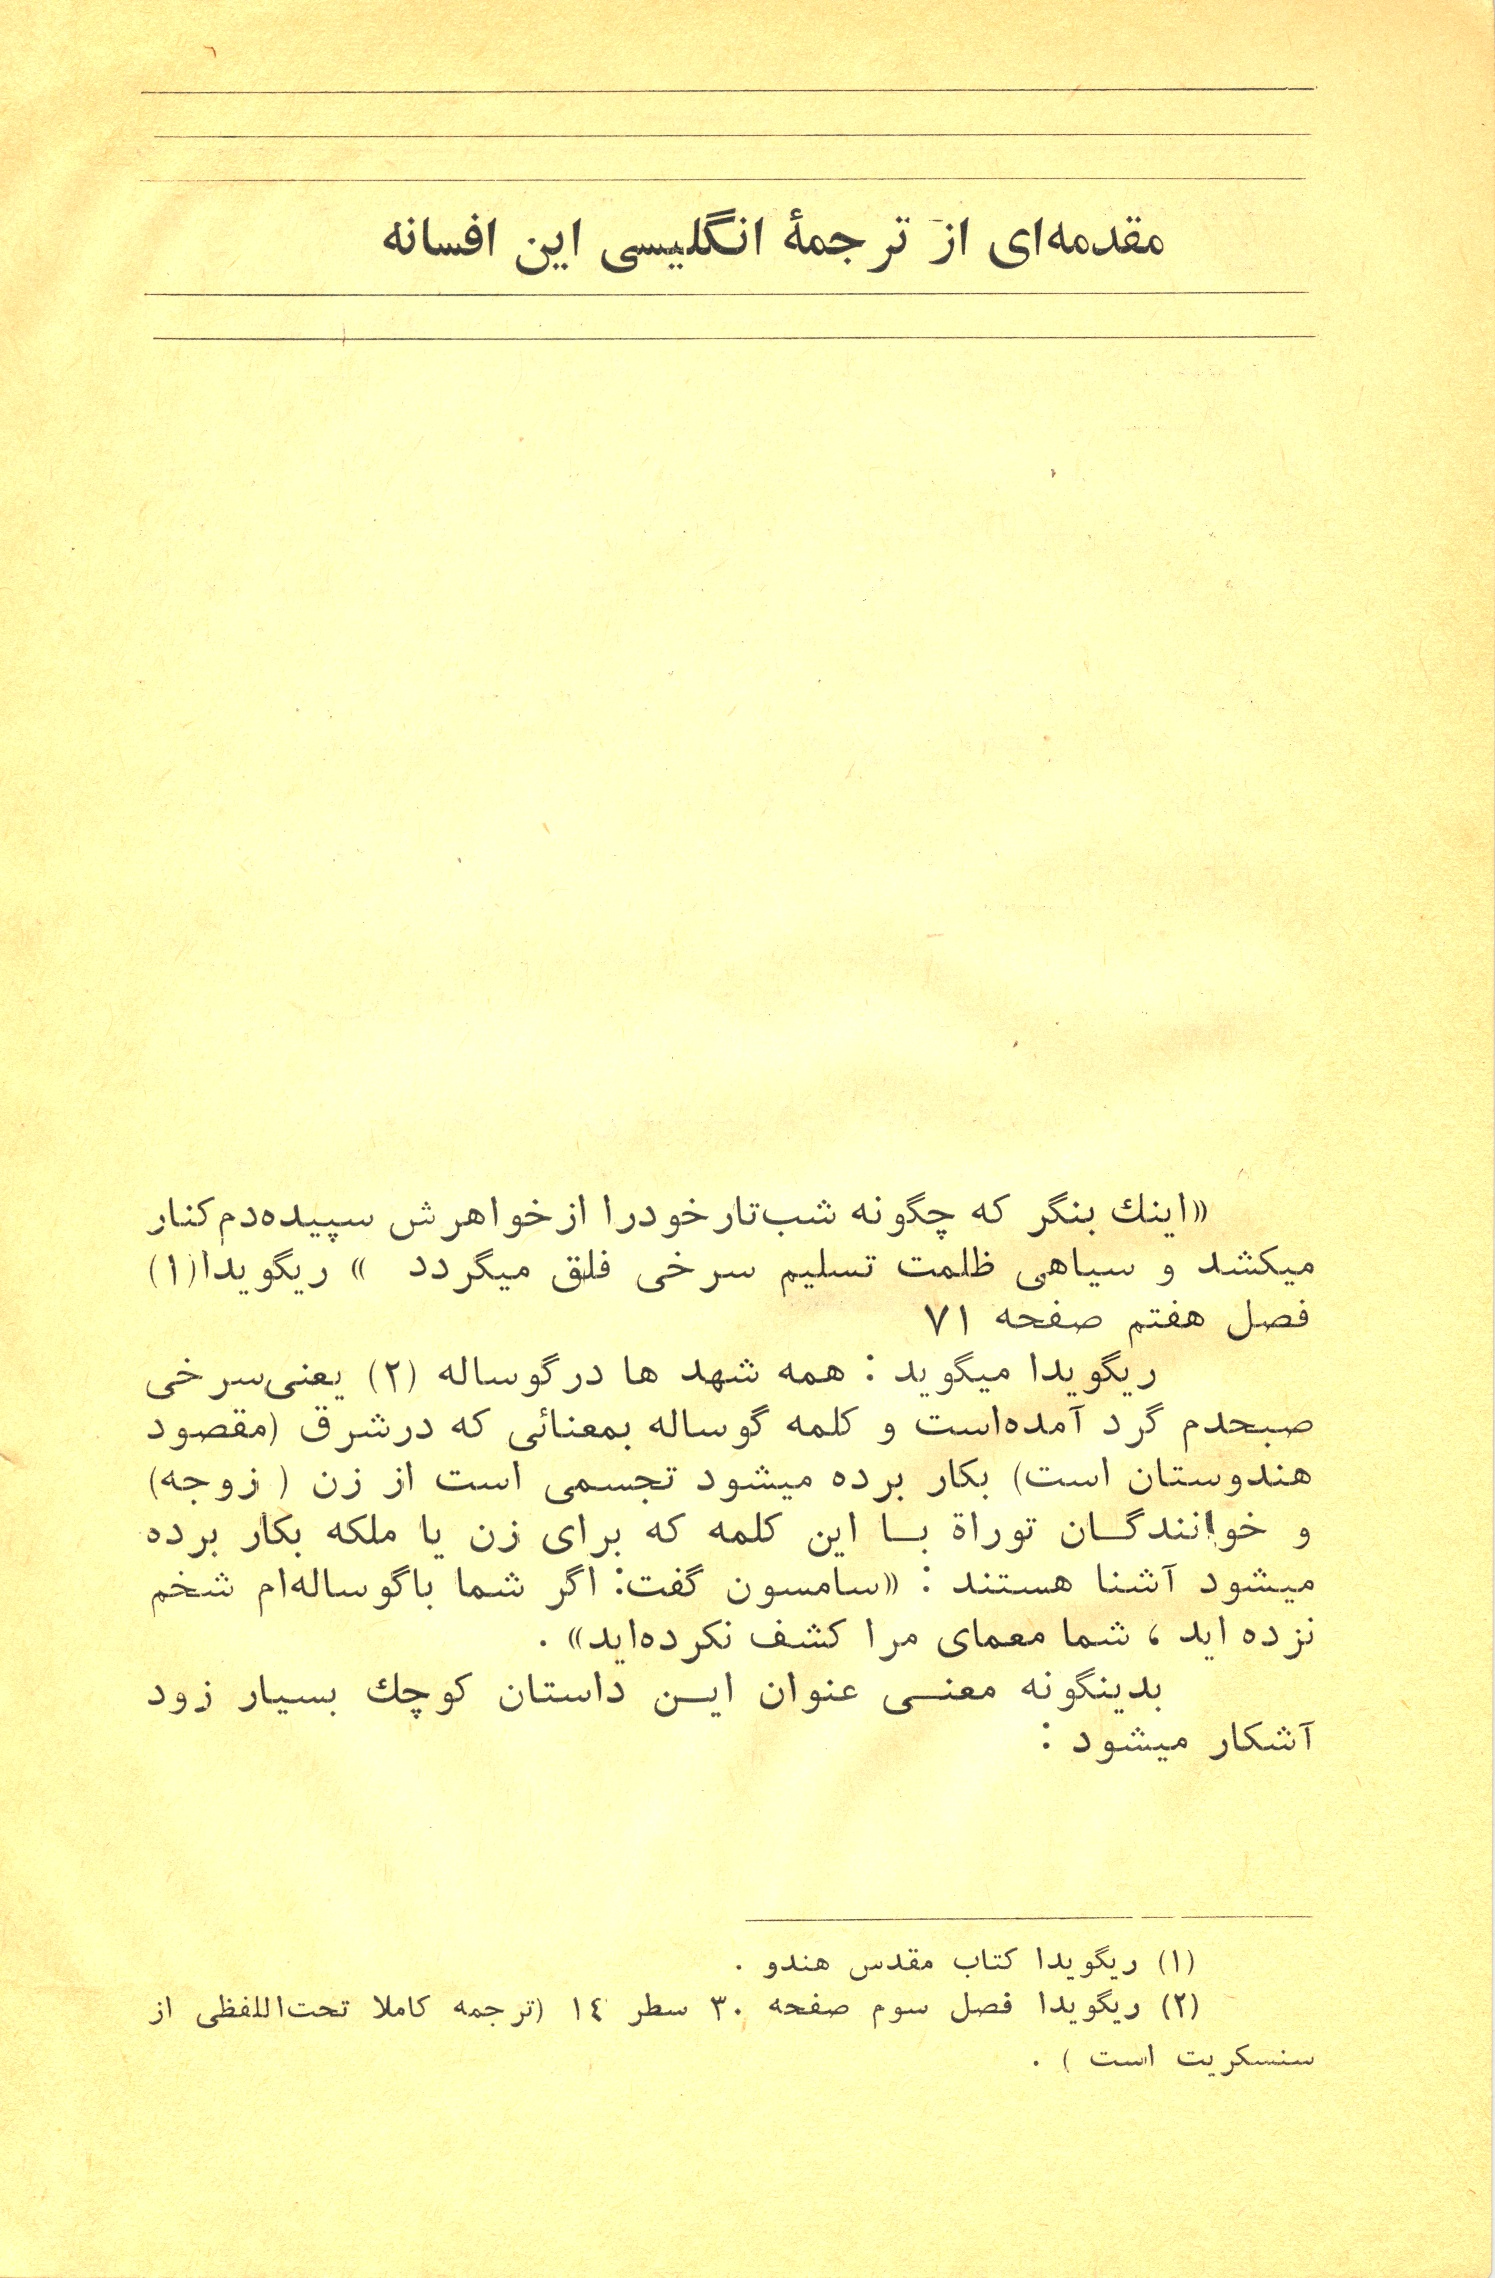 مقدمه‌ای از ترجمهٔ انگلیسی این افسانه
«اینك بنگر که چگونه شب‌تارخودرا ازخواهرش سپیده‌دم‌کنار
میکشد و سیاهی ظلمت تسلیم سرخی فلق میگردد » ریگویدا(۱)
فصل هفتم صفحه ۷۱
ریگویدا میگوید : همه شهد ها درگوساله (۲) یعنی‌سرخی
صبحدم گرد آمده‌است و کلمه گوساله بمعنائی که درشرق (مقصود
هندوستان است) بکار برده میشود تجسمی است از زن ( زوجه)
و خوانندگان توراة با این کلمه که برای زن یا ملکه بکار برده
میشود آشنا هستند : «سامسون گفت: اگر شما باگوساله‌ام شخم
نزده اید ، شما معمای مرا کشف نکرده‌اید» .
بدینگونه معنی عنوان این داستان کوچك بسیار زود
آشکار میشود :
(۱) ریگویدا کتاب مقدس هندو .
(۲) ریگویدا فصل سوم صفحه ۳۰ سطر ۱٤ (ترجمه کاملا تحت‌اللفظی از
سنسکریت است ) .